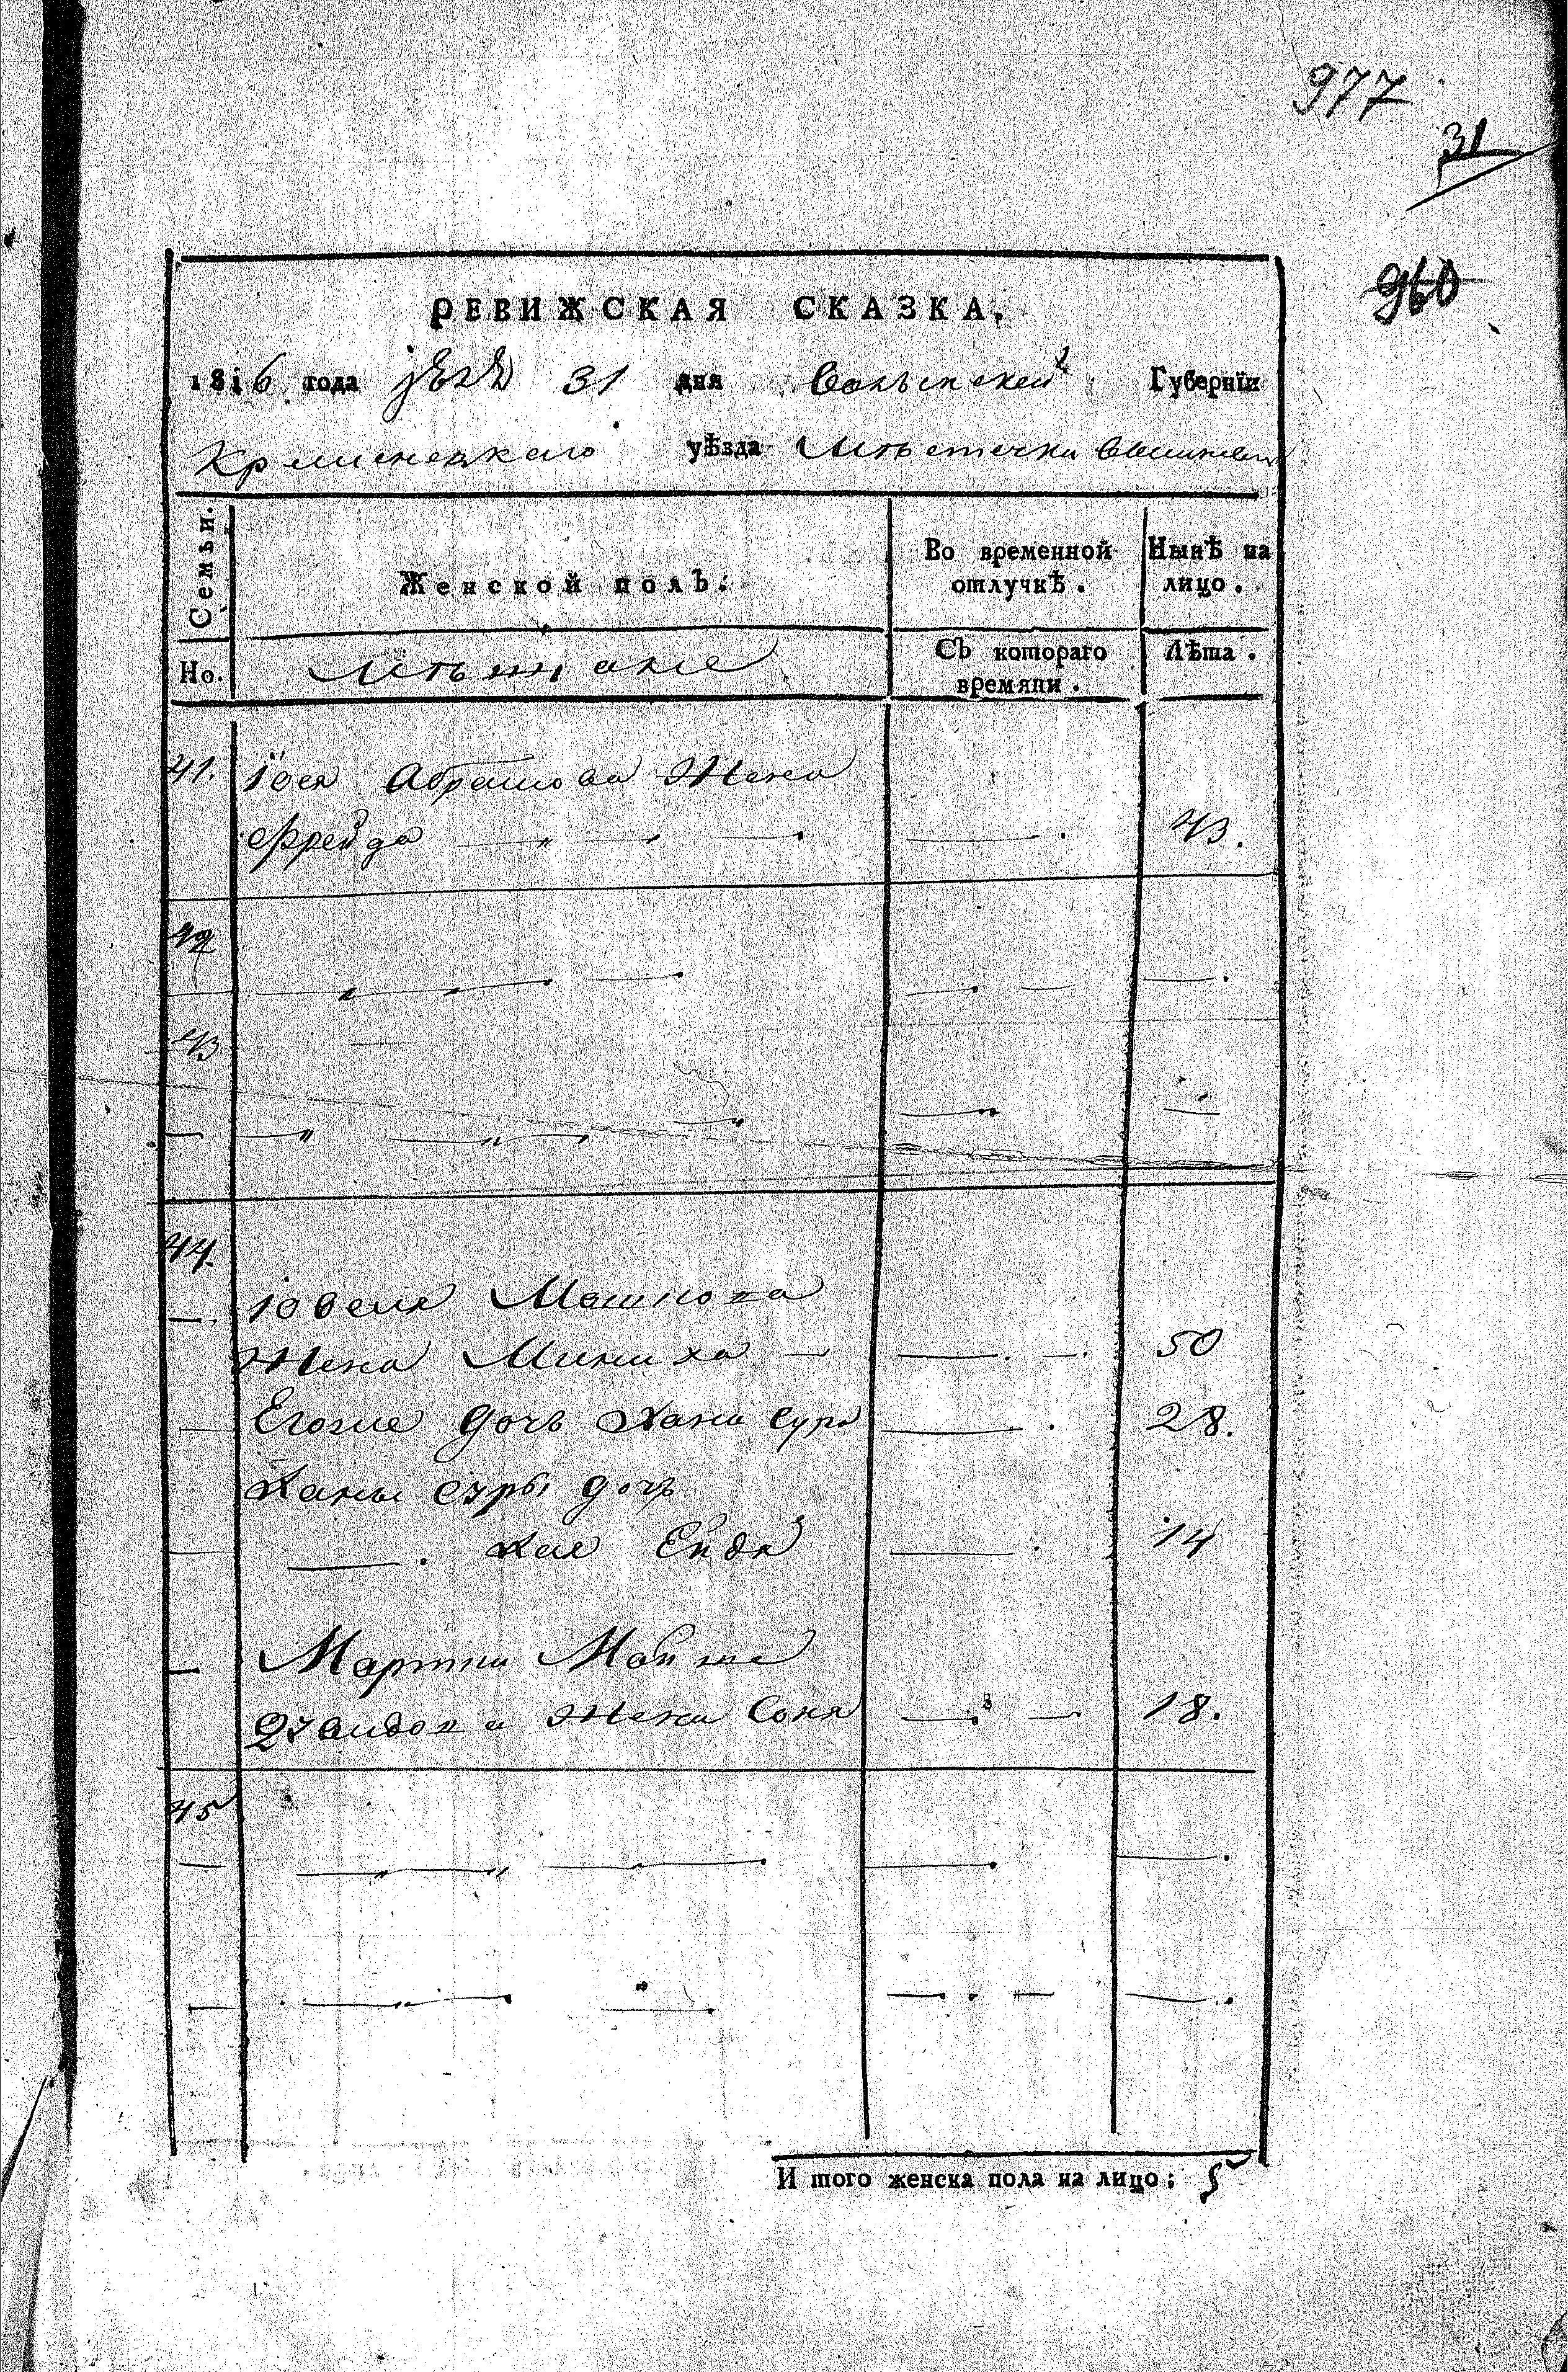 977
31
960
РЕВИЖСКАЯ СКАЗКА.
1816 года 31 дня Волынской Губернїи
Кременецкаго уѣзда Мѣстечка Вишневца
Семьи.
Женской полъ.
Во временной отлучкѣ.
Нынѣ на лицо.
Но.
Мѣщане
Съ котораго времяни.
Лѣта.
41. Абрамова Жена
Фрейда 43.
42
43
44.
Іовеля Мошкова
Жена 50
Егоже дочь Хана Сура 28.
Ханы Суры дочь
Хая Ейдя 14
Жена Соня 18.
45
И того женска пола на лицо: 5